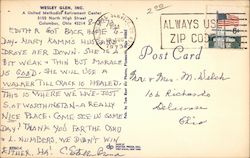 WESLEY GLEN, INC.
A United Methodist Retirement Center
5155 North High Street
Columbus, Ohio 43214
EDITH A GOT BACK HOME
DAY. NANCY RAMMS HUSBAND
DROVE HER DOWN. SHE IS A
BIT WEAK - THIN BUT MORALE
IS GOOD. SHE WILL USE A
WALKER TILL CRACK IS HEALED.
THIS IS WHERE WE LIVE - JUST
S. OF WORTHINGTON - A REALLY
NICE PLACE. COME SEE IN SOME
DAY! THANK YOU FOR THE CARD
& L. NUMBERS. WE DIDN'T WIN
EITHER. HA!
ALWAYS USE
ZIP CODE
Post Card
Mr & Mrs. M. Welch
Delaware
Ohio